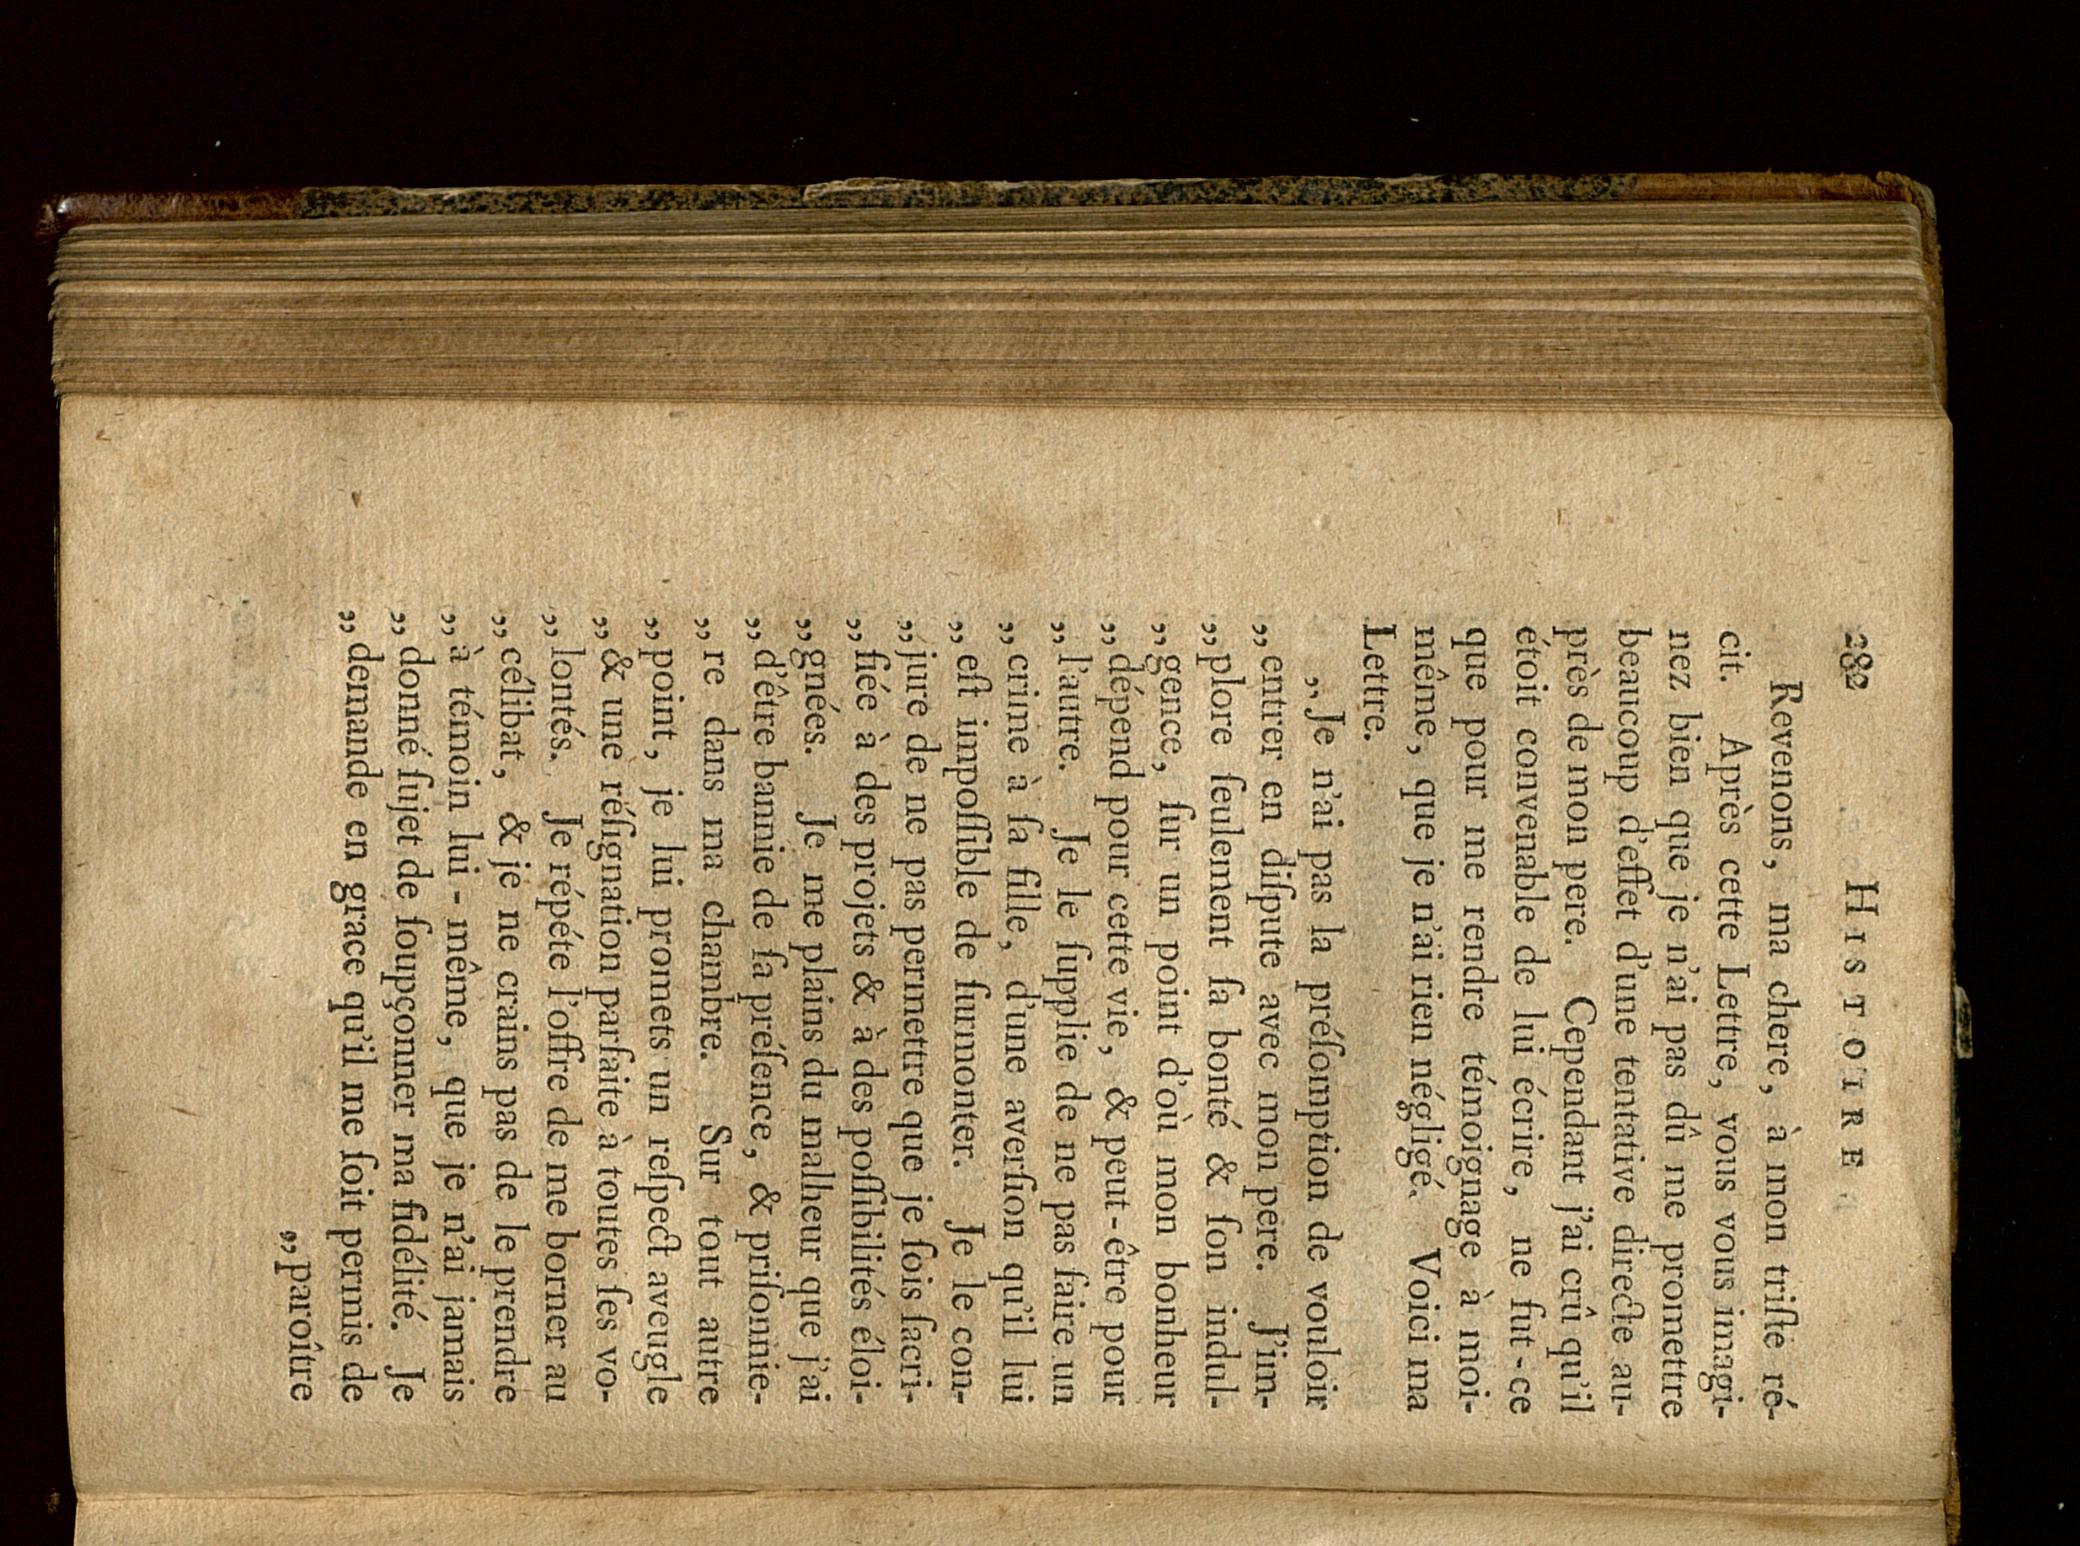 282 HISTOIRE
Revenons, ma chere, à mon triſte ré-
cit. Après cette Lettre, vous vous imagi-
nez bien que je n'ai pas dû me promettre
beaucoup d'effet d'une tentative directe au-
près de mon pere. Cependant j'ai crû qu'il
étoit convenable de lui écrire, ne fut-ce
que pour me rendre témoignage à moi-
même, que je n'ai rien négligé. Voici ma
Lettre.
„Je n'ai pas la préſomption de vouloir
„entrer en diſpute avec mon pere. J'im-
„plore ſeulement ſa bonté & ſon indul-
„gence, ſur un point d'où mon bonheur
„dépend pour cette vie, & peut-être pour
„l'autre. Je le ſupplie de ne pas faire un
„crime à ſa fille, d'une averſion qu'il lui
„eſt impoſſible de ſurmonter. Je le con-
„jure de ne pas permettre que je ſois ſacri-
„fiée à des projets & à des poſſibilités éloi-
„gnées. Je me plains du malheur que j'ai
„d'être bannie de ſa préſence, & priſonnie-
„re dans ma chambre. Sur tout autre
„point, je lui promets un reſpect aveugle
„& une réſignation parfaite à toutes ſes vo-
„lontés. Je répéte l'offre de me borner au
„célibat, & je ne crains pas de le prendre
„à témoin lui-même, que je n'ai jamais
„donné ſujet de ſoupçonner ma fidélité. Je
„demande en grace qu'il me ſoit permis de
„paroître